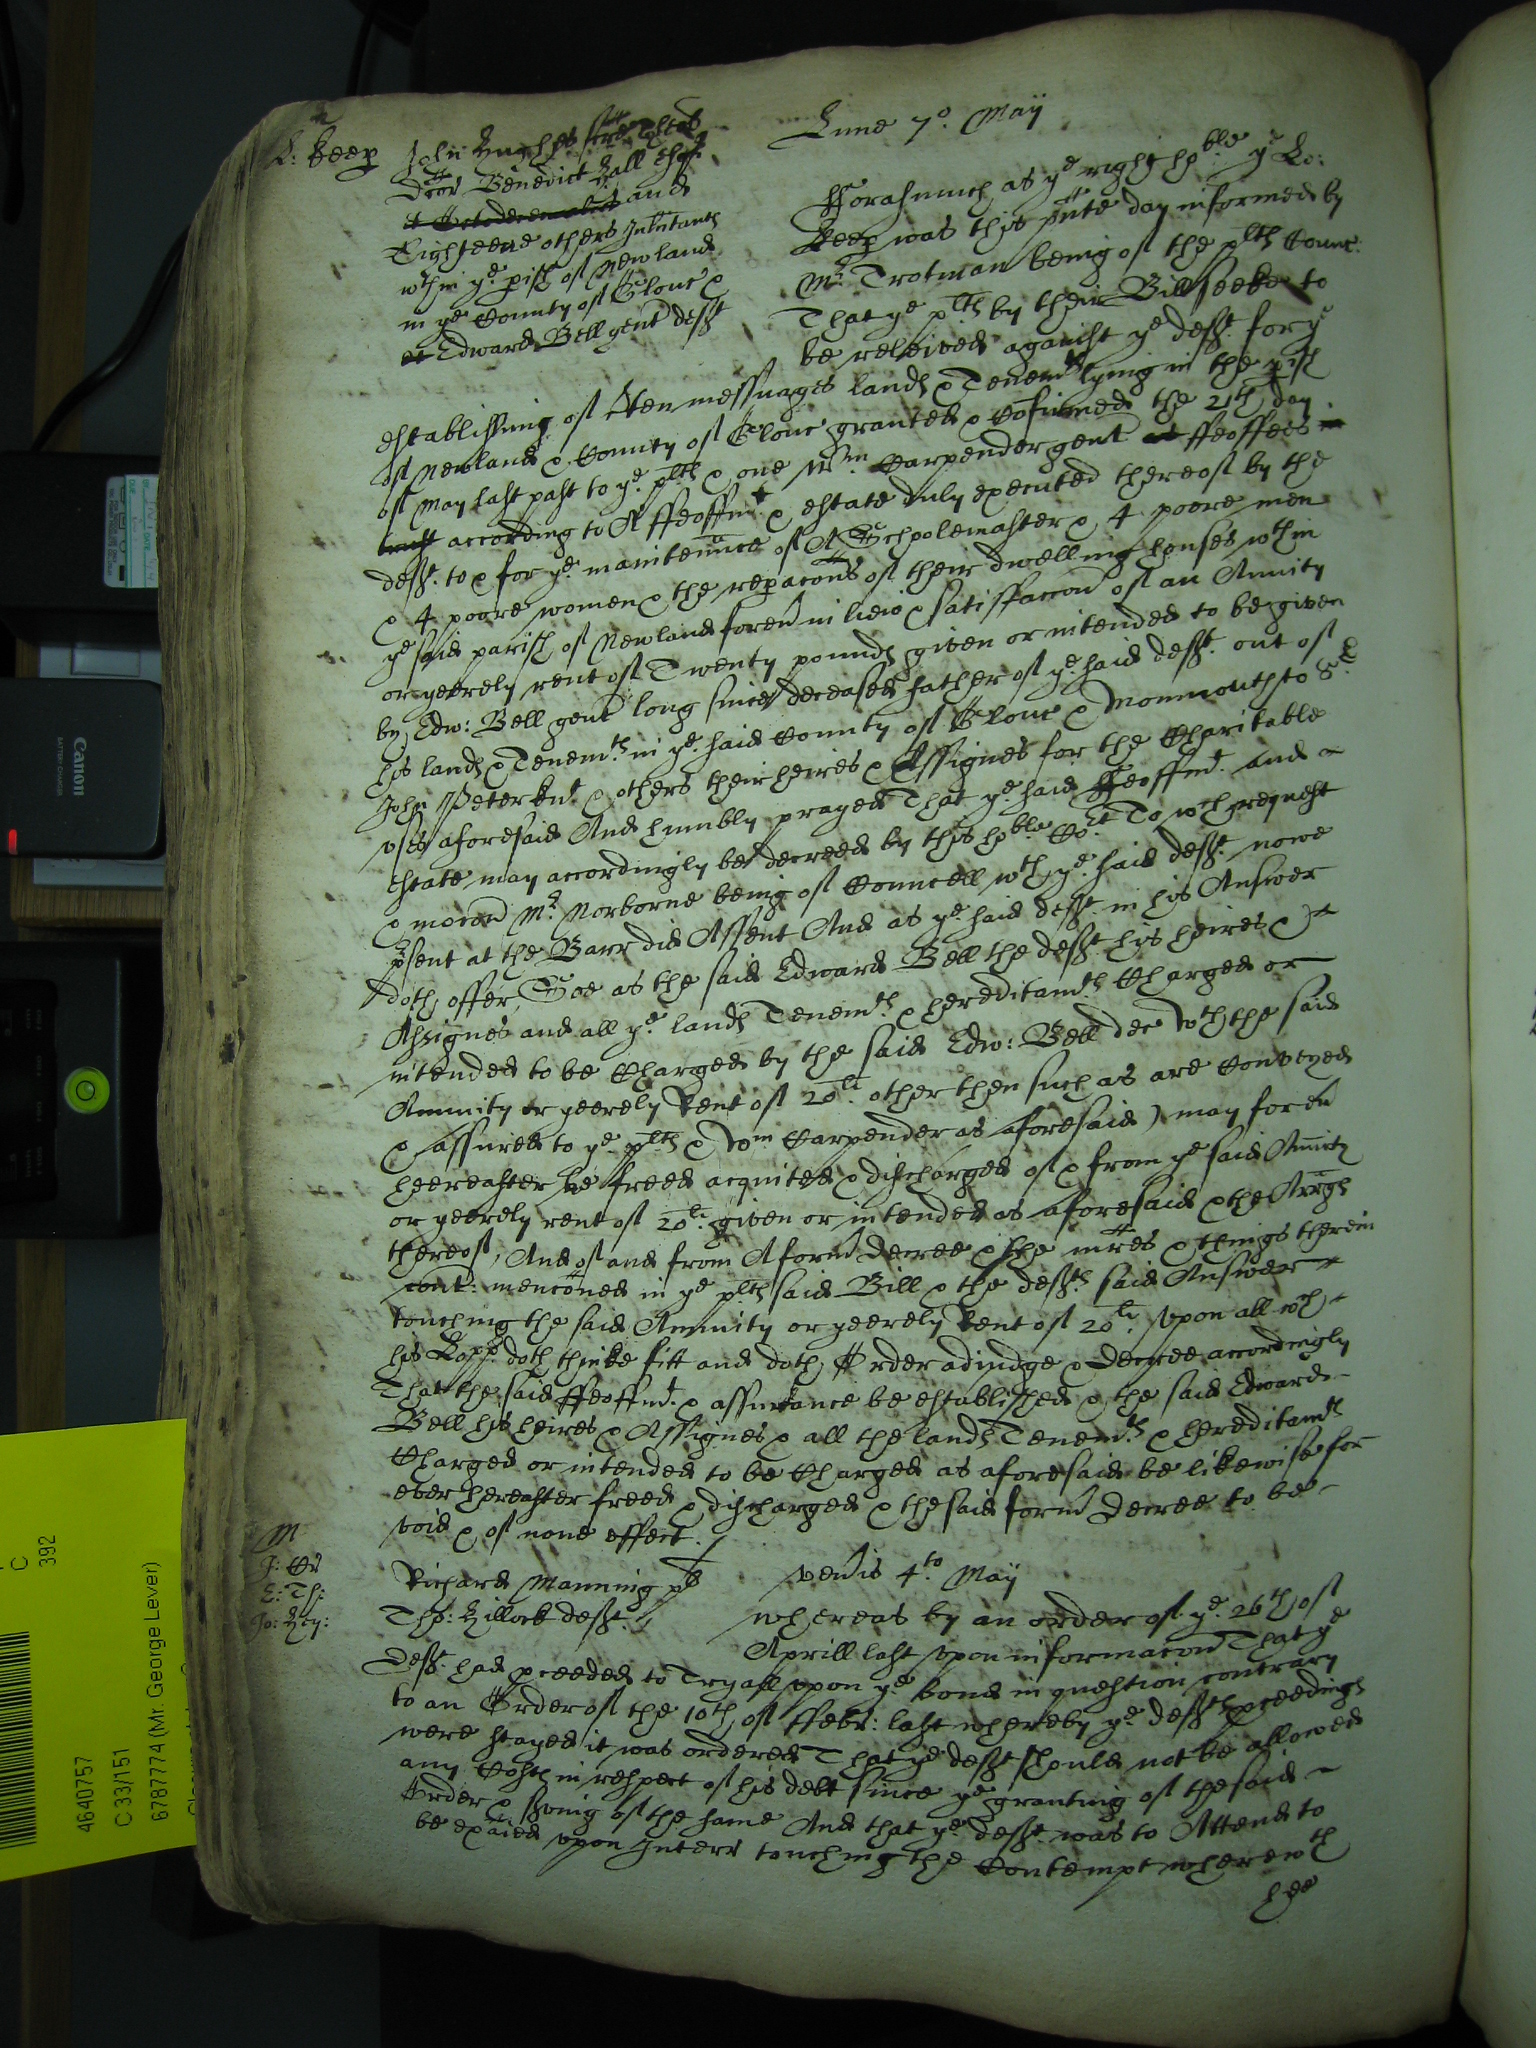 L: keep
John Hughes sacre theo:
Dcor Benedict Hall Esqr
et Octodecem alios and
Eighteene others Inhitants
wthin ye pish of Newland
in ye County of Glouc &
et Edward Bell gent defft
Lune 7o. Maij
Fforasmuch as ye right hoble ye Lo:
Keep was this pnte day informed by
Mr Trotman being of the plts Counc:
That ye plts by their Bill seeke to
be releived against ye defft for ye
establishing of Ten messuages lands & Tenemts lying in the pish
of Newland & County of Glouc granted & Cofirmed the 21th day
of May last past to ye plts & one Wm Carpender gent as ffeoffees in
trust according to A ffeoffmt & estate duly executed thereof by the
defft to & for ye maintennce of A Schoolemaster & 4 poore men
& 4 poore women & the repacons of their dwelling houses wthin
ye said parish of Newland forevr in liew & satisfaccon of an Annity
or yeerely rent of Twenty pounds given or intended to be given
by Edw: Bell gent long since deceased father of ye said defft out of
his lands & Tenemts in ye said County of Glouc & Monmouth to Sr
John Peter knt & others their heires & Assignes for the Charitable
uses aforesaid And humbly prayed That ye said ffeoffmt and
estate may accordingly be decreed by this hoble Cort To wch request
& mocon Mr Norborne being of Councell wth ye said defft nowe
psent at the Barr did Assent And as ye said defft in his Answer
doth offer Soe as the said Edward Bell the defft his heires &
Assignes and all ye lands Tenemts & hereditamts Charged or
intended to be Charged by the said Edw: Bell dec wth the said
Annuity or yeerely Rent of 20li other then such as are Conveyed
& assured to ye plts & Wm Carpender as aforesaid) may forevr
heereafter be freed acquited & discharged of & from ye said Annity
or yeerely rent of 20li given or intended as aforesaid & the Arrgs
thereof, And of and from A formr Decree & the mres & things therein
cont: menconed in ye plts said Bill & the deffts said Answer
touching the said Annuity or yeerely Rent of 20li upon all wch
his Lopp doth thinke fitt and doth Order adiudge & Decree accordingly
That the said ffeoffmt & assurance be established & the said Edward
Bell his heires & Assignes & all the lands Tenemts & hereditamts
Charged or intended to be Charged as aforesaid be likewise for
ever hereafter freed & discharged & the said formr Decree to be
void & of none effect.
M
J: Cr
E: Th:
Jo: Hey:
Richard Manning plt
Tho: Hillock defft
Venis 4to Maij
Whereas by an order of ye 26th of
Aprill last upon informacon That ye
Defft had pceeded to Tryall upon ye bond in question contrary
to an Order of the 10th of ffebr: last whereby ye deffts pceedings
were stayed it was ordered That ye defft should not be allowed
any Costs in respect of his debt since ye granting of the said
Order & sving of the same And that ye defft was to Attend to
be exaied upon Interr touching the Contempt wherewth
hee
Canon
BATTERY CHARGER
C
392
4640757
C 33/151
6787774 (Mr. George Lever)